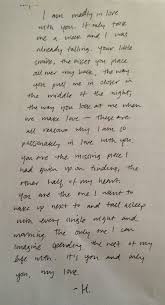 I am madly in love
with you. It only took
me a week and I was
already falling. Your little
smile, the kisses you place
all over my back, the way
you pull me in closer in
the middle of the night,
the way you look at me when
we make love - these are
all reasons why I am so
passionately in love with you.
you are the missing piece I
had given up on finding, the
other half of my heart.
You are the one I want to
wake up next to and fall asleep
with every single night and
morning. The only one I can
imagine spending the rest of my
life with. it's you and only
you, my love.
-H.